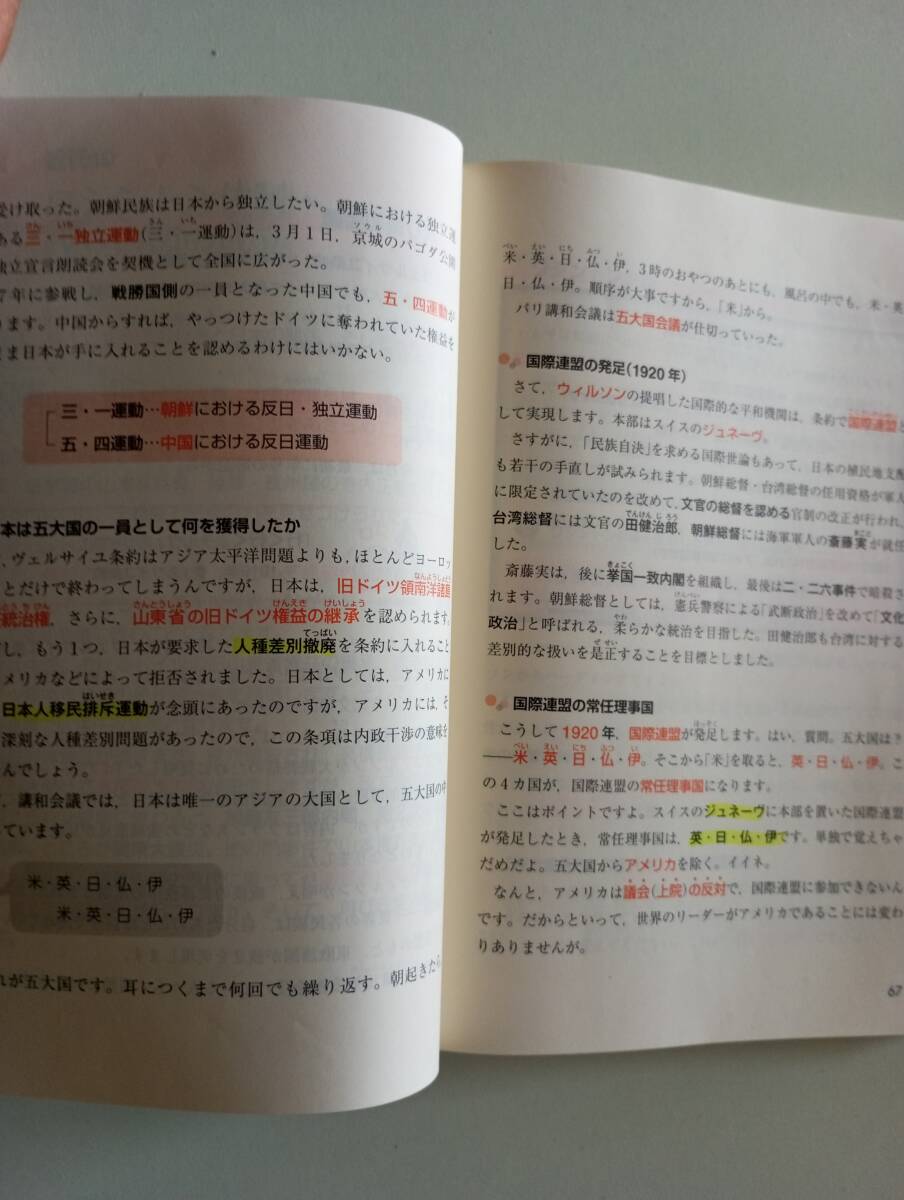 受け取った。朝鮮民族は日本から独立したい。朝鮮における独立運
ある三・一独立運動(三・一運動)は，3月1日，京城のパゴダ公園
独立宣言朗読会を契機として全国に広がった。
7年に参戦し，戦勝国側の一員となった中国でも，五・四運動が
ります。中国からすれば，やっつけたドイツに奪われていた権益を
まま日本が手に入れることを認めるわけにはいかない。
三・一運動…朝鮮における反日・独立運動
五・四運動…中国における反日運動
本は五大国の一員として何を獲得したか
，ヴェルサイユ条約はアジア太平洋問題よりも，ほとんどヨーロッ
ことだけで終わってしまうんですが，日本は，旧ドイツ領南洋諸島
任統治権，さらに，山東省の旧ドイツ権益の継承を認められます。
し，もう1つ，日本が要求した人種差別撤廃を条約に入れること
メリカなどによって拒否されました。日本としては，アメリカに
日本人移民排斥運動が念頭にあったのですが，アメリカには，そ
深刻な人種差別問題があったので，この条項は内政干渉の意味を
んでしょう。
，講和会議では，日本は唯一のアジアの大国として，五大国の中
っています。
米・英・日・仏・伊
米・英・日・仏・伊
れが五大国です。耳につくまで何回でも繰り返す。朝起きたら
米・英・日・仏・伊，3時のおやつのあとにも，風呂の中でも，米・英
日・仏・伊。順序が大事ですから，「米」から。
パリ講和会議は五大国会議が仕切っていった。
国際連盟の発足(1920年)
さて，ウィルソンの提唱した国際的な平和機関は，条約で国際連盟と
して実現します。本部はスイスのジュネーヴ。
さすがに，「民族自決」を求める国際世論もあって，日本の植民地支配
も若干の手直しが試みられます。朝鮮総督・台湾総督の任用資格が軍人
に限定されていたのを改めて，文官の総督を認める官制の改正が行われ，
台湾総督には文官の田健治郎，朝鮮総督には海軍軍人の斎藤実が就任
した。
斎藤実は，後に挙国一致内閣を組織し，最後は二・二六事件で暗殺さ
れます。朝鮮総督としては，憲兵警察による「武断政治」を改めて「文化
政治」と呼ばれる，柔らかな統治を目指した。田健治郎も台湾に対する
差別的な扱いを是正することを目標としました。
国際連盟の常任理事国
こうして1920年，国際連盟が発足します。はい，質問。五大国は？
――米・英・日・仏・伊。そこから「米」を取ると，英・日・仏・伊。こ
の4カ国が，国際連盟の常任理事国になります。
ここはポイントですよ。スイスのジュネーヴに本部を置いた国際連盟
が発足したとき，常任理事国は，英・日・仏・伊です。単独で覚えちゃ
だめだよ。五大国からアメリカを除く。イイネ。
なんと，アメリカは議会(上院)の反対で，国際連盟に参加できないん
です。だからといって，世界のリーダーがアメリカであることには変わ
りありませんが。
67